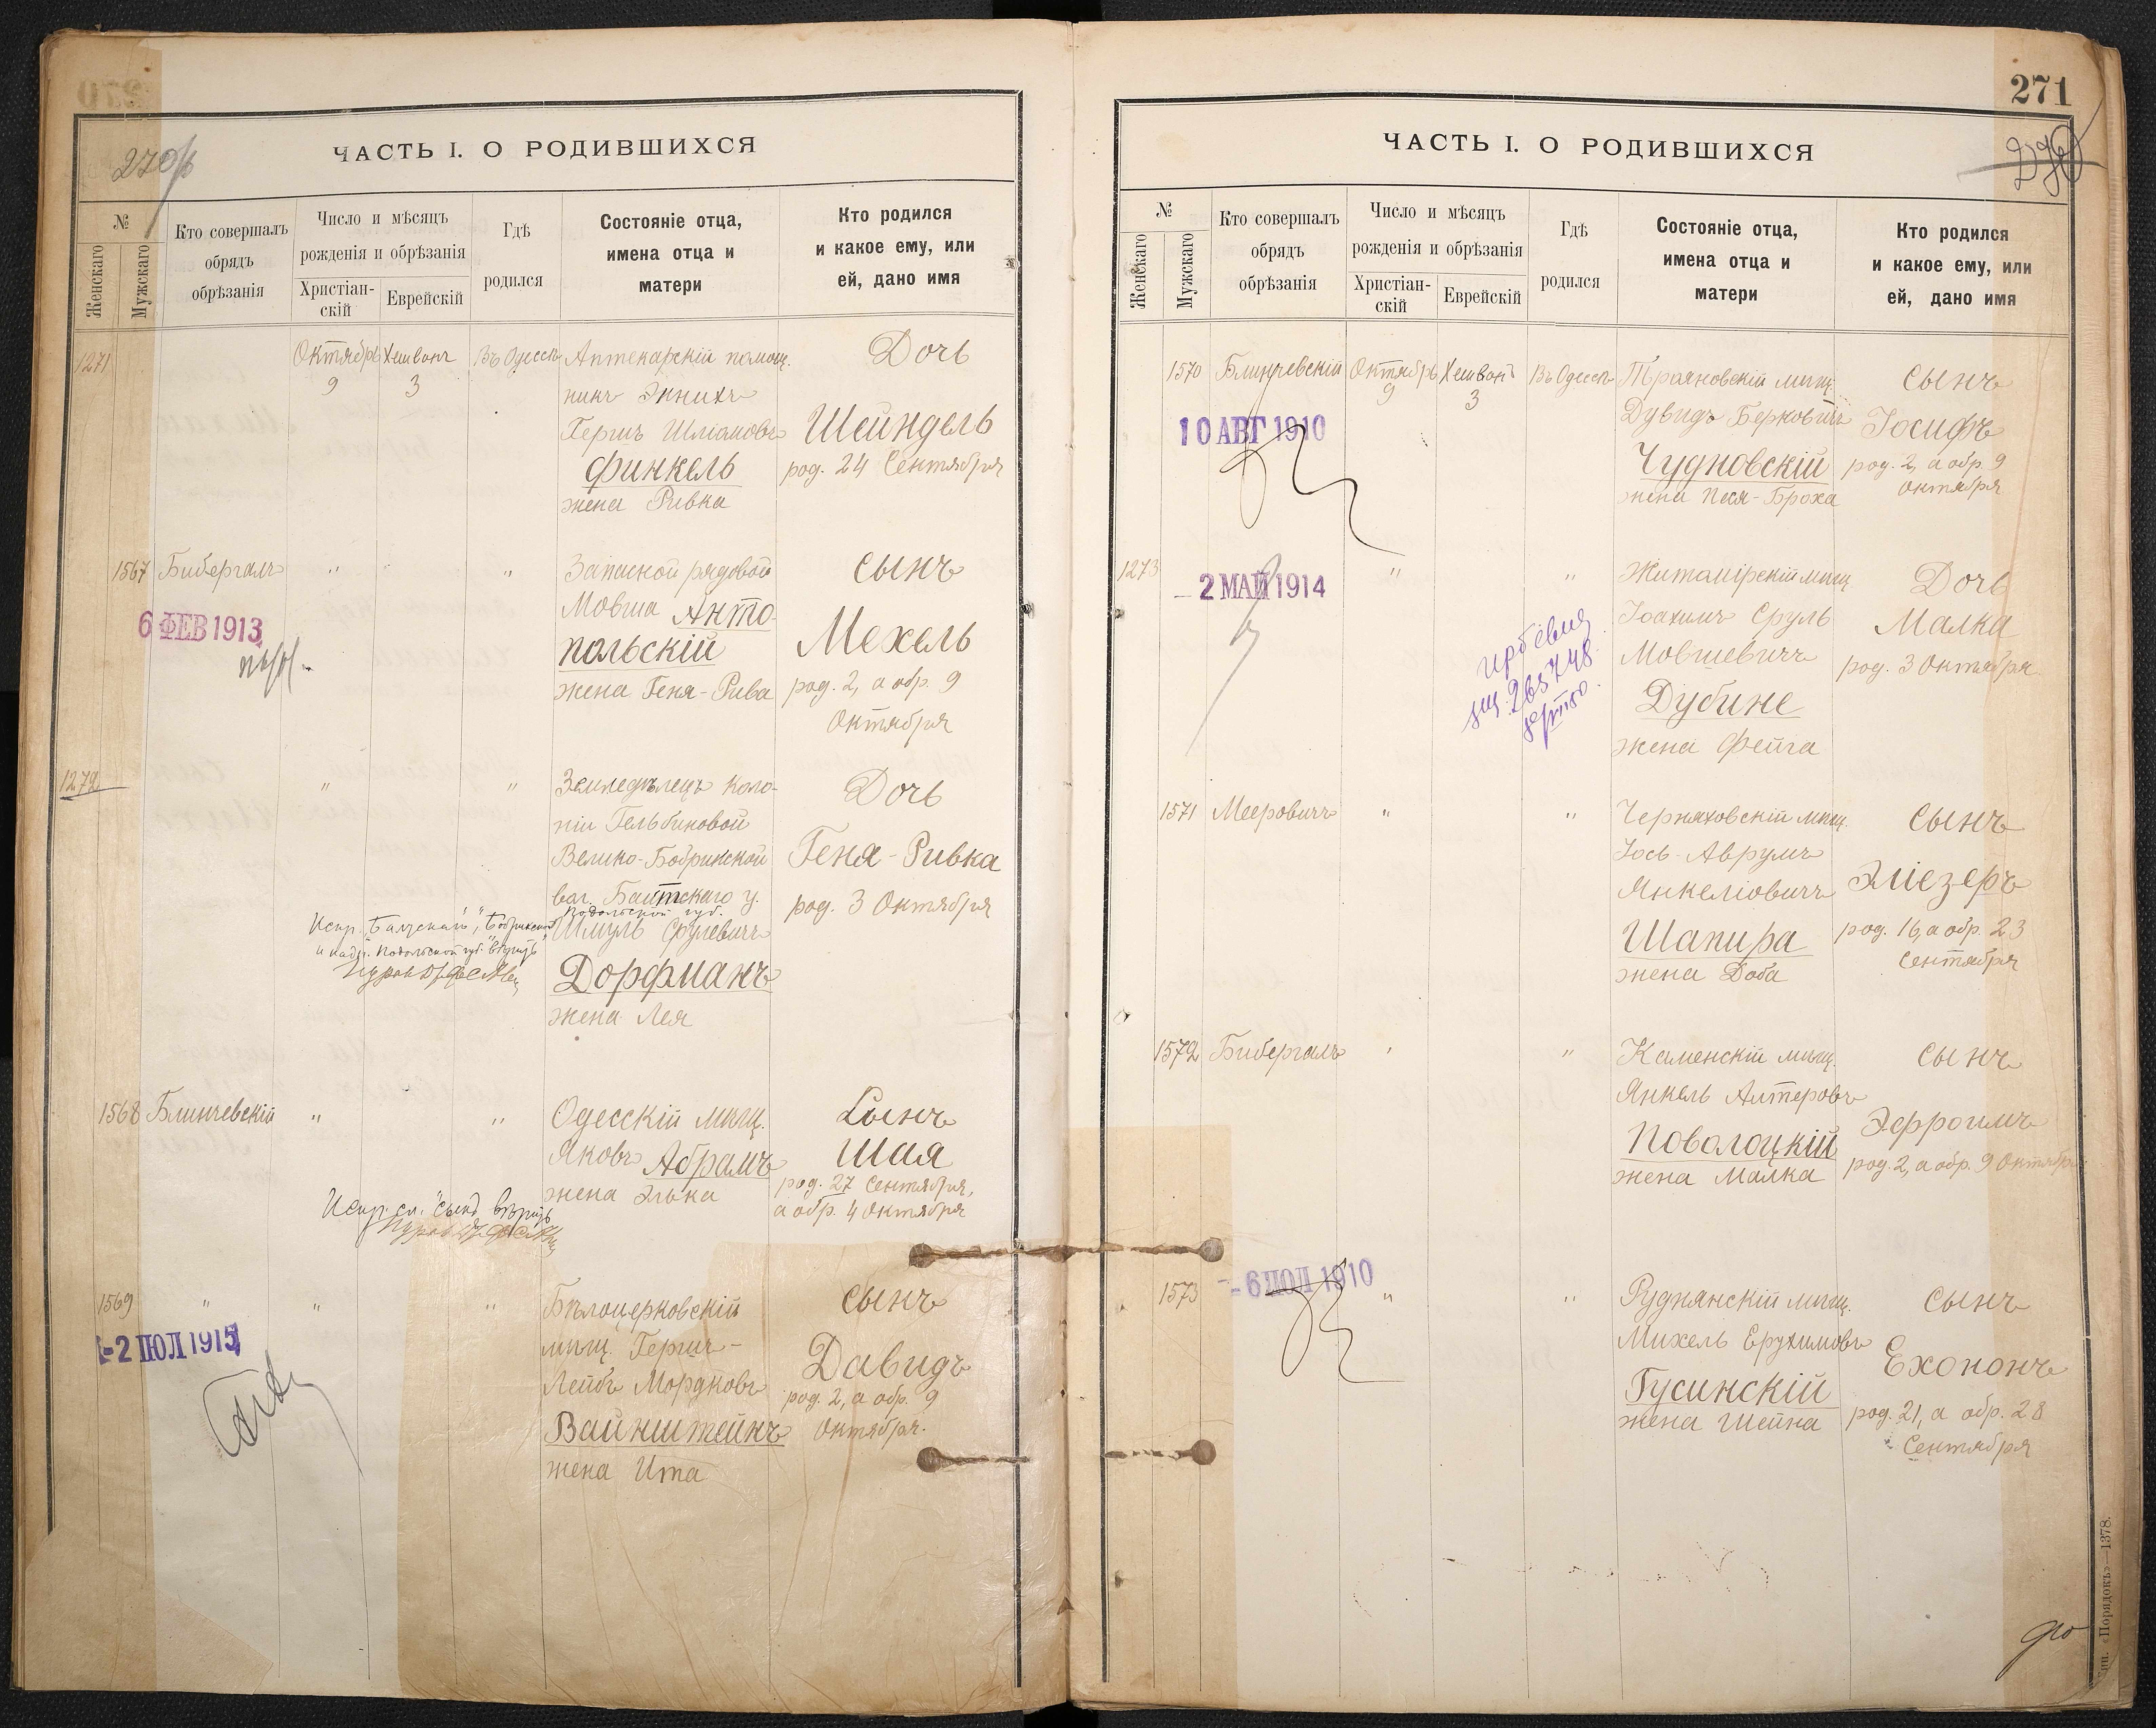 270
ЧАСТЬ I. О РОДИВШИХСЯ
№
Женскаго
Мужскаго
Кто совершалъ
обрядъ
обрѣзанія
Число и мѣсяцъ
рожденія и обрѣзанія
Христіан-
скій
Еврейскій
Гдѣ
родился
Состояніе отца,
имена отца и
матери
Кто родился
и какое ему, или
ей, дано имя
1271
Октября Хешванъ Въ Одессѣ Аптекарскій помощ. Дочь
9 3
никъ
Гершъ Шліомовъ Шейндель
Финкель род. 24 Сентября
жена Ривка
1567 Бибергалъ " " Запасной рядовой сынъ
6 ФЕВ 1913
Мовша Анто-
польскій Мехель
жена Геня-Рива род. 2, а обр. 9
Октября
1272 " " Земледѣлецъ коло- Дочь
ніи Гельбиновой
Велико-Бобрикской Геня-Ривка
вол. Балтскаго у. род. 3 Октября
Подольской губ.
Испр. "Балтскаго", "Бобрикской"
и надп. "Подольской губ." вѣрить
Шмуль Срулевичъ
Дорфманъ
жена Лея
1568 Блинчевскій " " Одесскій мѣщ. Сынъ
Яковъ Абрамъ Шая
жена Элька род. 27 Сентября,
а обр. 4 Октября
Испр. сл. "Сынъ" вѣрить
1569 " " " Бѣлоцерковскій сынъ
-2 ІЮЛ 1915
мѣщ. Гершъ-
Лейбъ Мордковъ Давидъ
род. 2, а обр. 9
Вайнштейнъ Октября.
жена Ита
271
ЧАСТЬ I. О РОДИВШИХСЯ
№
Женскаго
Мужскаго
Кто совершалъ
обрядъ
обрѣзанія
Число и мѣсяцъ
рожденія и обрѣзанія
Христіан-
скій
Еврейскій
Гдѣ
родился
Состояніе отца,
имена отца и
матери
Кто родился
и какое ему, или
ей, дано имя
1570 Блинчевскій Октября Хешванъ Въ Одессѣ Траяновскій мѣщ. сынъ
9 3
10 АВГ 1910
Дувидъ Берковичъ Іосифъ
Чудновскій род. 2, а обр. 9
жена Песя-Броха Октября
1273 " " Житомірскій мѣщ. Дочь
2 МАЙ 1914
Іоахимъ Сруль Малка
Мовшевичъ род. 3 Октября
Дубине
жена Фейга
1571 Мееровичъ " " Черняховскій мѣщ. сынъ
Іось-Аврумъ
Янкеліовичъ Эліезеръ
Шапира род. 16, а обр. 23
жена Доба Сентября
1572 Бибергалъ " " Каменскій мѣщ. сынъ
Янкель Алтеровъ
Поволоцкій Эфроимъ
жена Малка род. 2, а обр. 9 Октября
1573 " " Руднянскій мѣщ. сынъ
-6 ІЮЛ 1910
Михель Ерухимовъ
Гусинскій Ехононъ
жена Шейна род. 21, а обр. 28
Сентября
Тип. «Порядокъ»—1378.